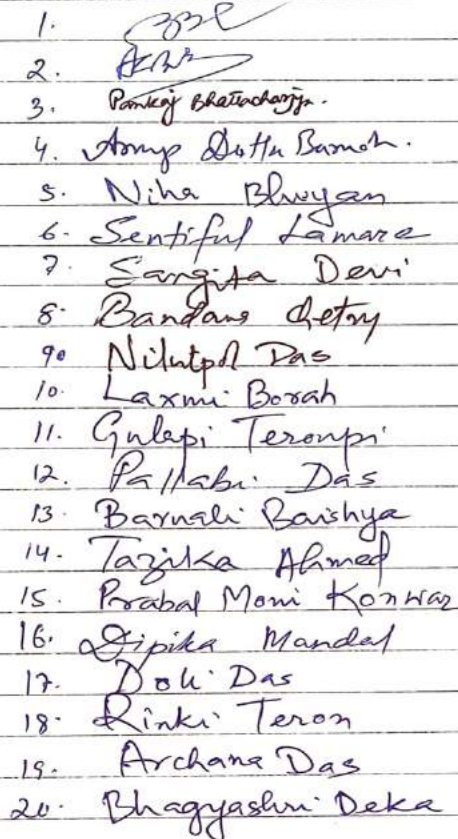 1.
2.
3. Pankaj Bhattacharjya.
4. Arup Dutta Baruah.
5. Niha Bhuyan
6. Sentiful Lamare
7. Sangita Devi
8. Bandana Chetry
9. Nilutpol Das
10. Laxmi Borah
11. Gulapi Teronpi
12. Pallabi Das
13. Barnali Baishya
14. Tazika Ahmed
15. Prabal Moni Konwar
16. Dipika Mandal
17. Doli Das
18. Rinki Teron
19. Archana Das
20. Bhagyashri Deka